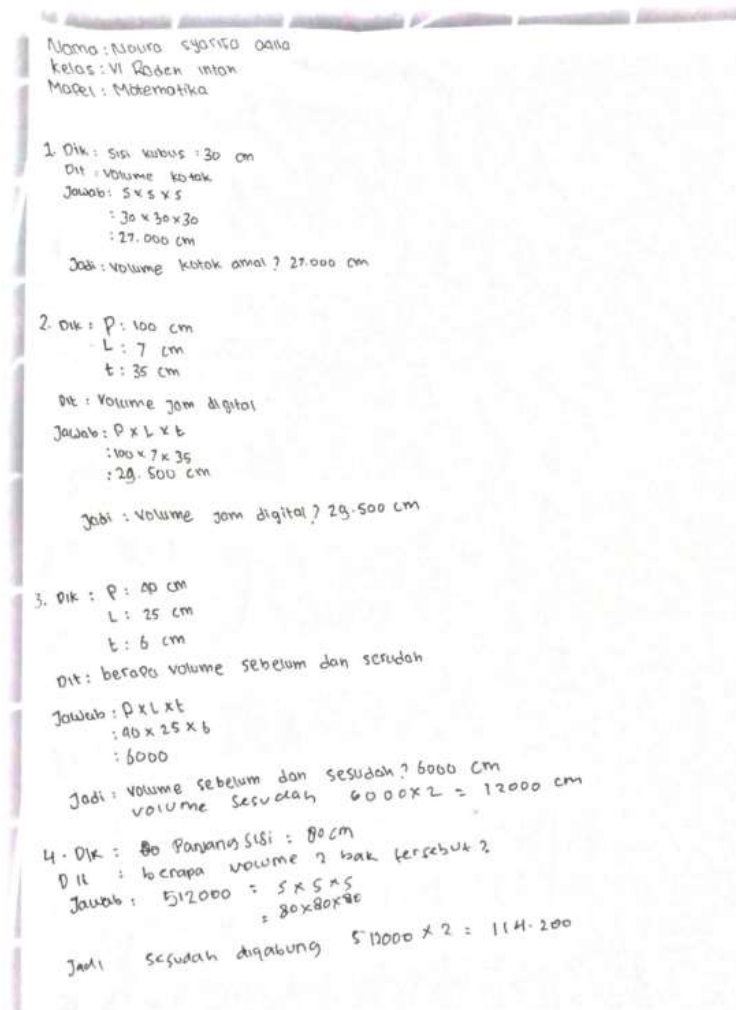 Nama : Noura syarifa
Kelas : VI Raden intan
Mapel : Matematika
1. Dik : sisi kubus : 30 cm
Dit : volume kotak
Jawab : s x s x s
: 30 x 30 x 30
: 27.000 cm
Jadi : volume kotak amal ? 27.000 cm
2. Dik : P : 100 cm
L : 7 cm
t : 35 cm
Dit : Volume jam digital
Jawab : P x L x t
: 100 x 7 x 35
: 29.500 cm
Jadi : Volume jam digital ? 29.500 cm
3. Dik : P : 40 cm
L : 25 cm
t : 6 cm
Dit : berapa volume sebelum dan sesudah
Jawab : P x L x t
: 40 x 25 x 6
: 6000
Jadi : volume sebelum dan sesudah ? 6000 cm
volume sesudah 6000 x 2 = 12000 cm
4. Dik : Panjang sisi : 80 cm
Dit : berapa volume 2 bak tersebut ?
Jawab : 512000 = s x s x s
= 80 x 80 x 80
Jadi sesudah digabung 512000 x 2 = 114.200